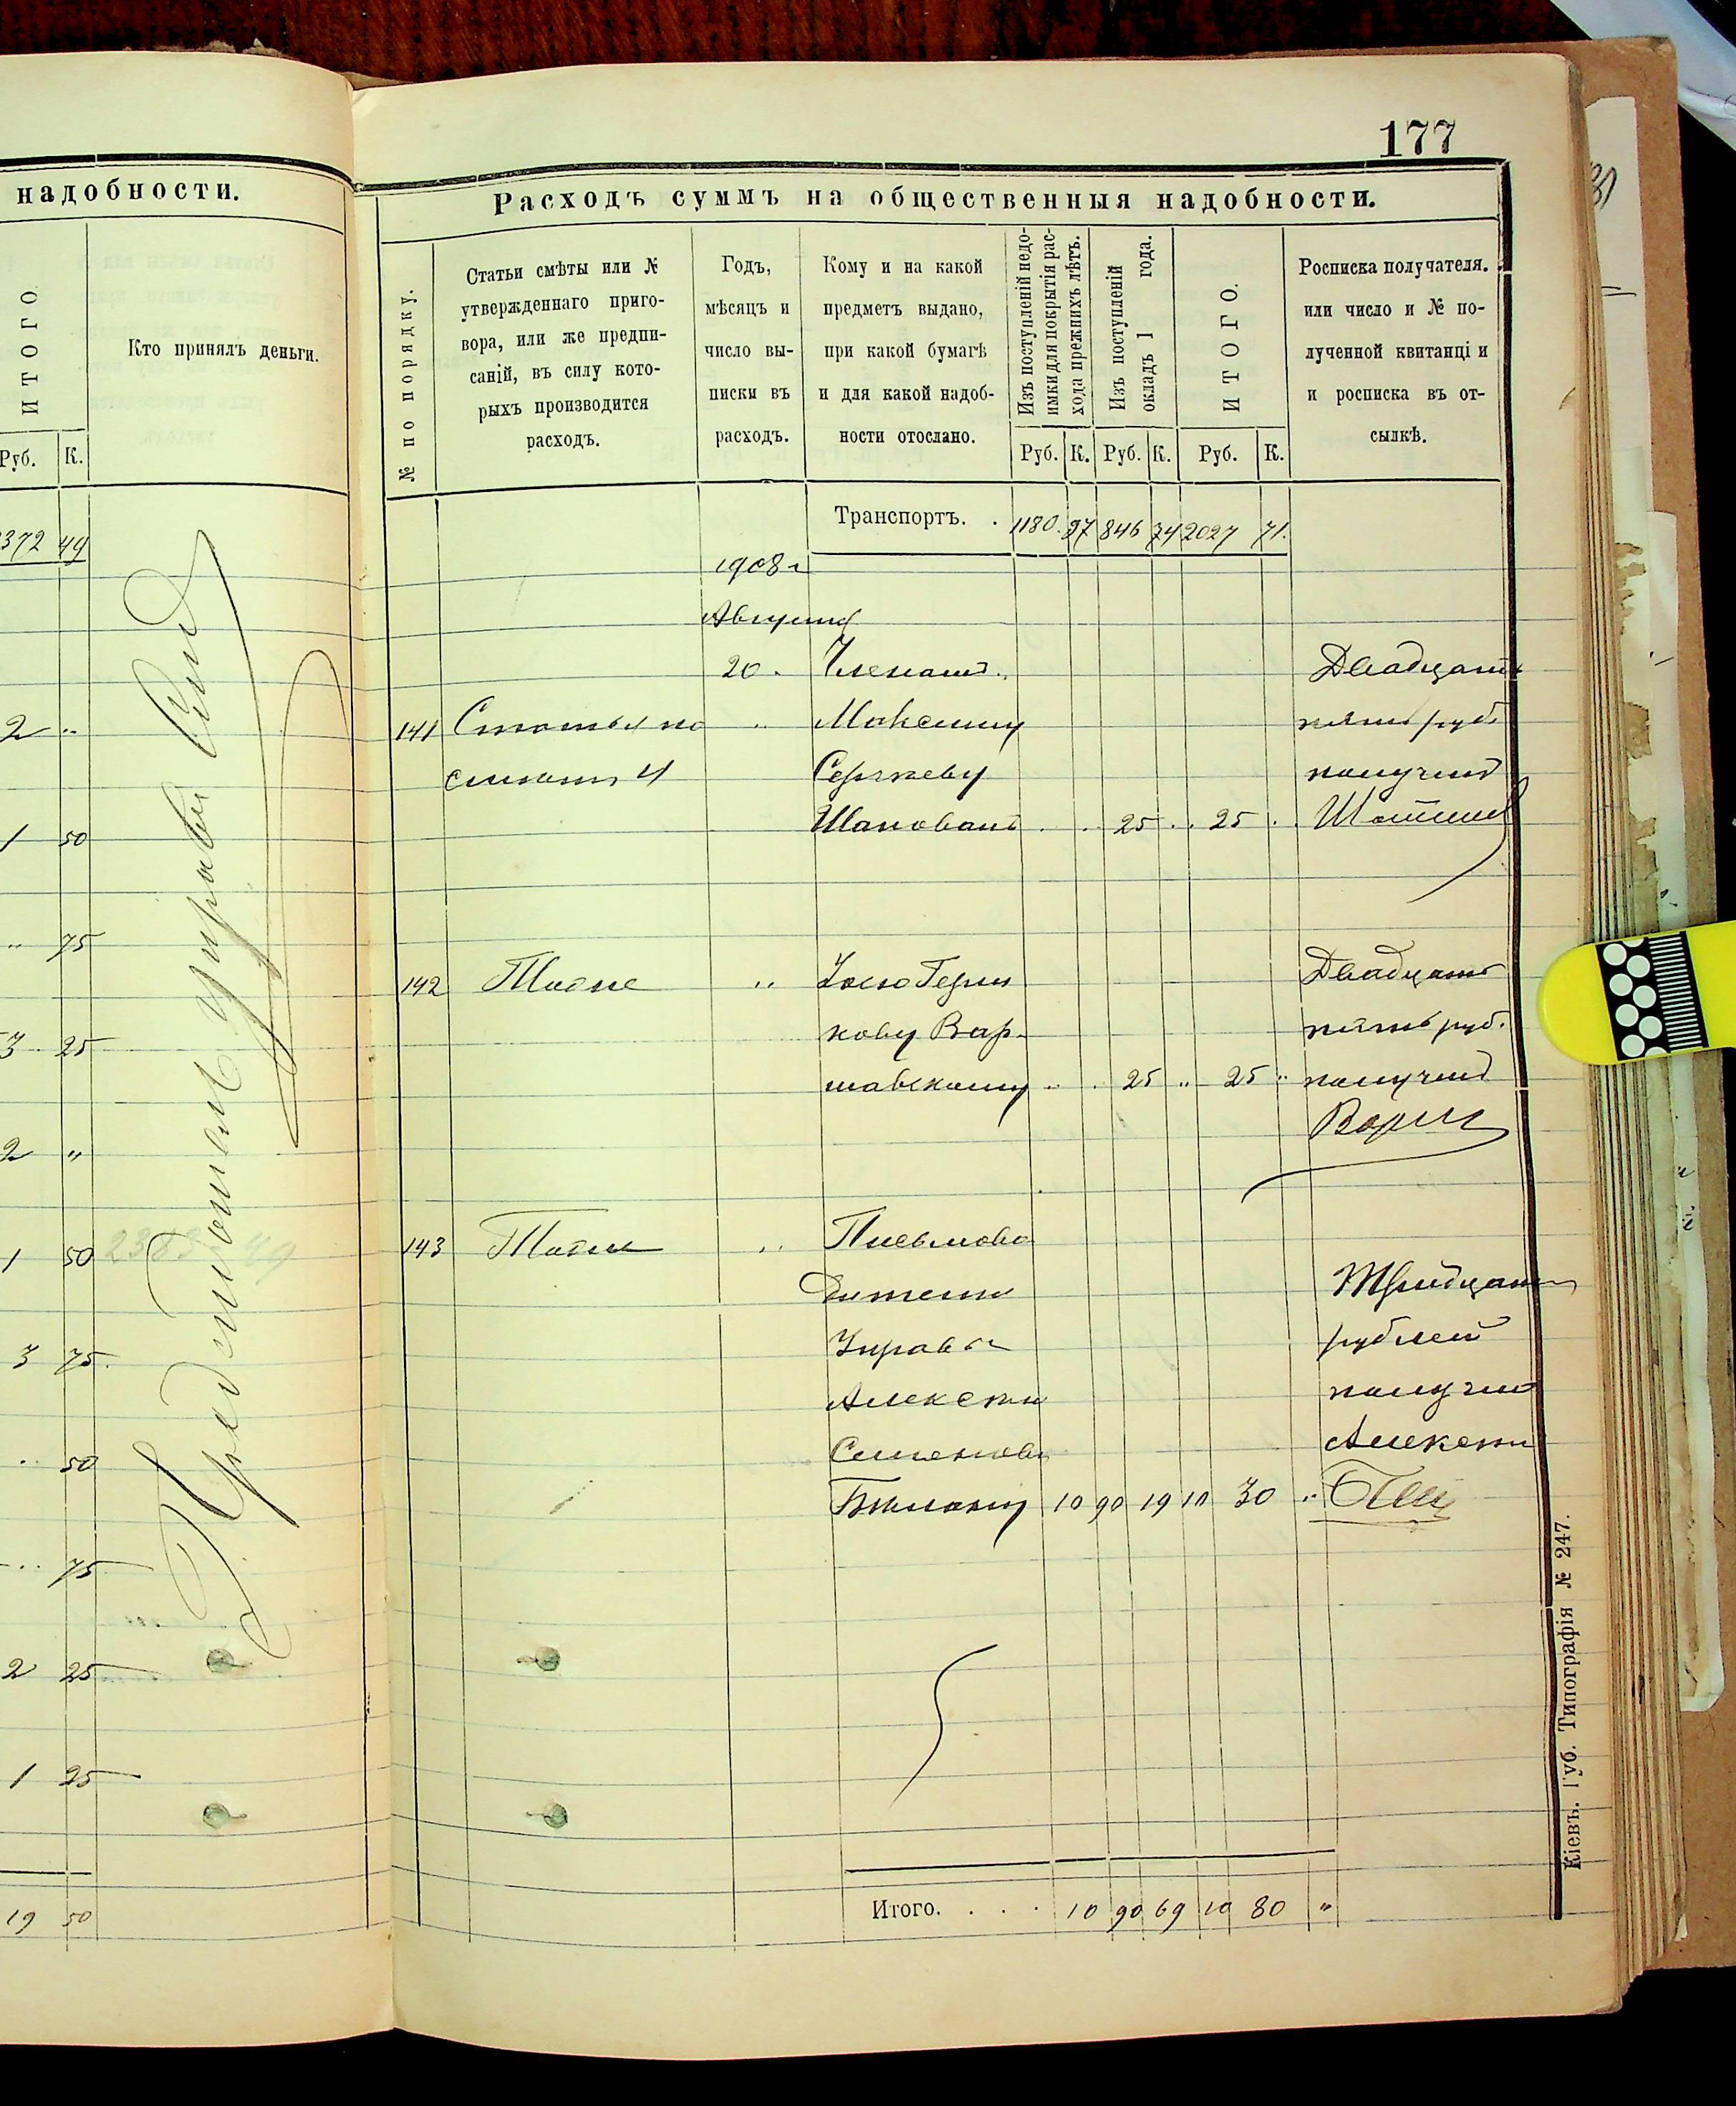 надобности.
ИТОГО
Кто принялъ деньги.
Руб. К.
372 49
2 "
1 50
" 75
3 25
2 "
1 50
3 75
" 50
" 75
2 25
1 25
19 50
177
Расходъ суммъ на общественныя надобности.
№ по порядку.
Статьи смѣты или №
утвержденнаго приго-
вора, или же предпи-
саній, въ силу кото-
рыхъ производится
расходъ.
Годъ,
мѣсяцъ и
число вы-
писки въ
расходъ.
Кому и на какой
предметъ выдано,
при какой бумагѣ
и для какой надоб-
ности отослано.
Изъ поступленій недо-
имки для покрытія рас-
хода прежнихъ лѣтъ.
Изъ поступленій
окладъ 1 года.
ИТОГО.
Росписка получателя.
или число и № по-
лученной квитанціи
и росписка въ от-
сылкѣ.
Руб. К. Руб. К. Руб. К.
Транспортъ. . 1180. 97 846 74 2027 71.
1908 г
Августа
20. Членамъ Двадцать
141 Статья по " пять руб.
смѣты 4 Сергѣеву получилъ
25 " 25 "
142 Тоже " Двадцать
кову Вар- пять руб.
шавскому " " 25 " 25 " получилъ
143 Тоже " Письмово
дителю Тридцать
Управы рублей
Алексѣю получилъ
Семенову Алексѣй
10 90 19 10 30 "
Итого. . . . 10 90 69 10 80 "
Кіевъ. Губ. Типографія № 247.